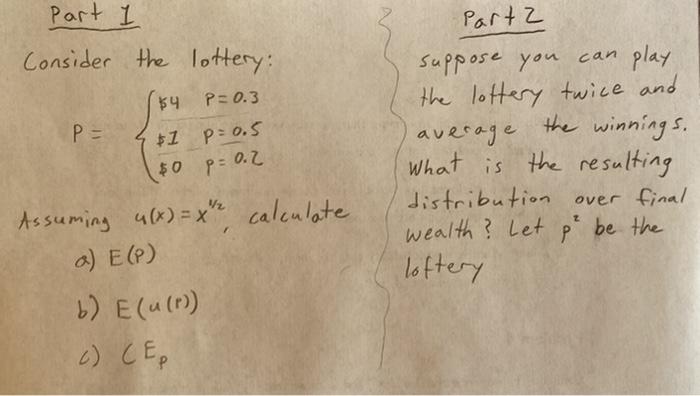 Part 1
Consider the lottery:
P = { $4 P = 0.3
$1 P = 0.5
$0 P = 0.2
Assuming u(x) = x^1/2, calculate
a) E(P)
b) E(u(P))
c) CE_P
Part 2
suppose you can play
the lottery twice and
average the winnings.
What is the resulting
distribution over final
wealth? Let p² be the
lottery